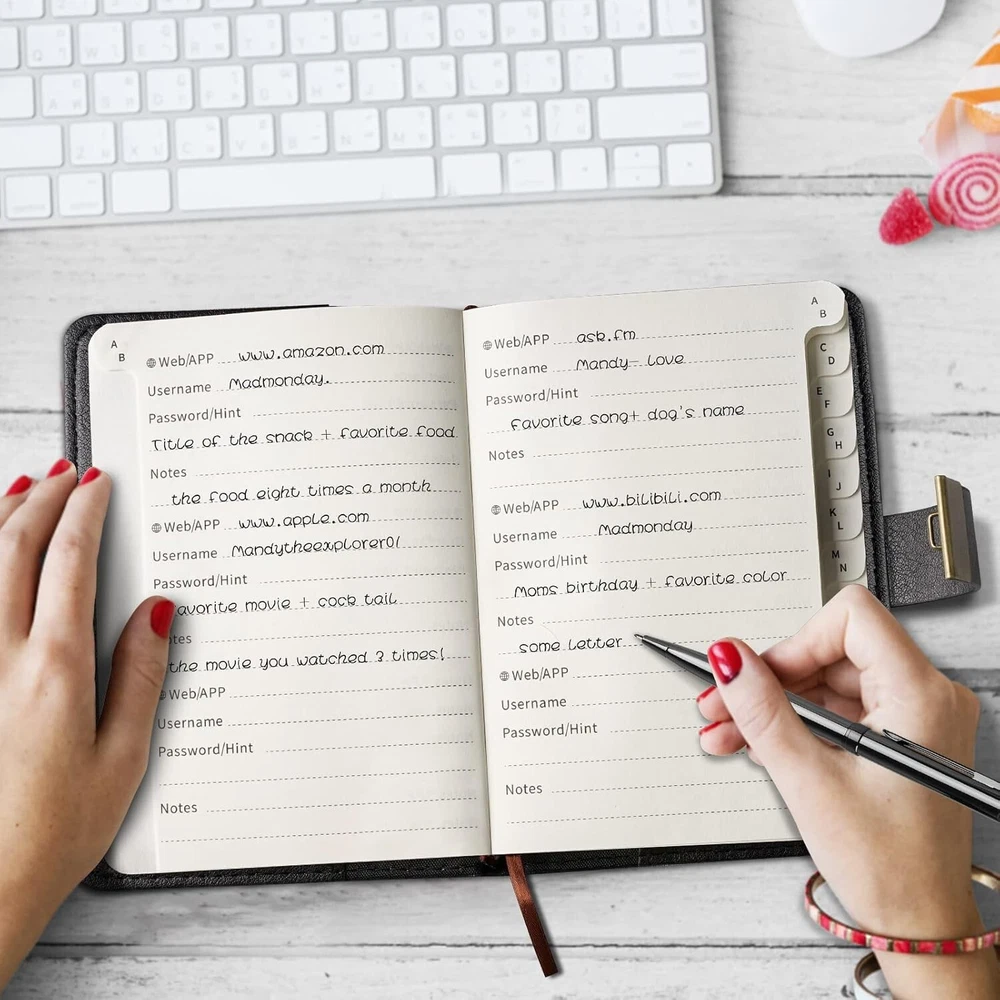 A
B
Web/APP www.amazon.com
Username Madmonday.
Password/Hint
Title of the snack + favorite food
Notes
the food eight times a month
Web/APP www.apple.com
Username Mandytheexplorer01
Password/Hint
avorite movie + cock tail
otes
the movie you watched 3 times!
Web/APP
Username
Password/Hint
Notes
A
B
Web/APP ask.fm
Username Mandy- Love
Password/Hint
favorite song+ dog's name
Notes
Web/APP www.bilibili.com
Username Madmonday
Password/Hint
Moms birthday + favorite color
Notes
some letter
Web/APP
Username
Password/Hint
Notes
C
D
E
F
G
H
I
J
K
L
M
N